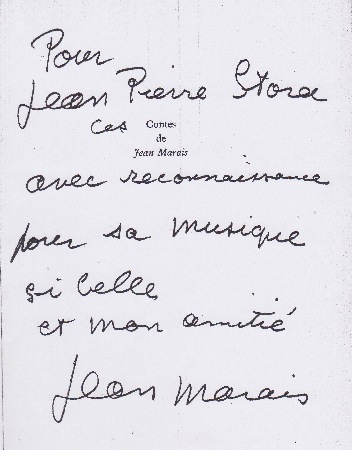 Pour
Jean Pierre Stora
Ces Contes
de
Jean Marais
avec reconnaissance
pour sa musique
si belle
et mon amitié
Jean Marais